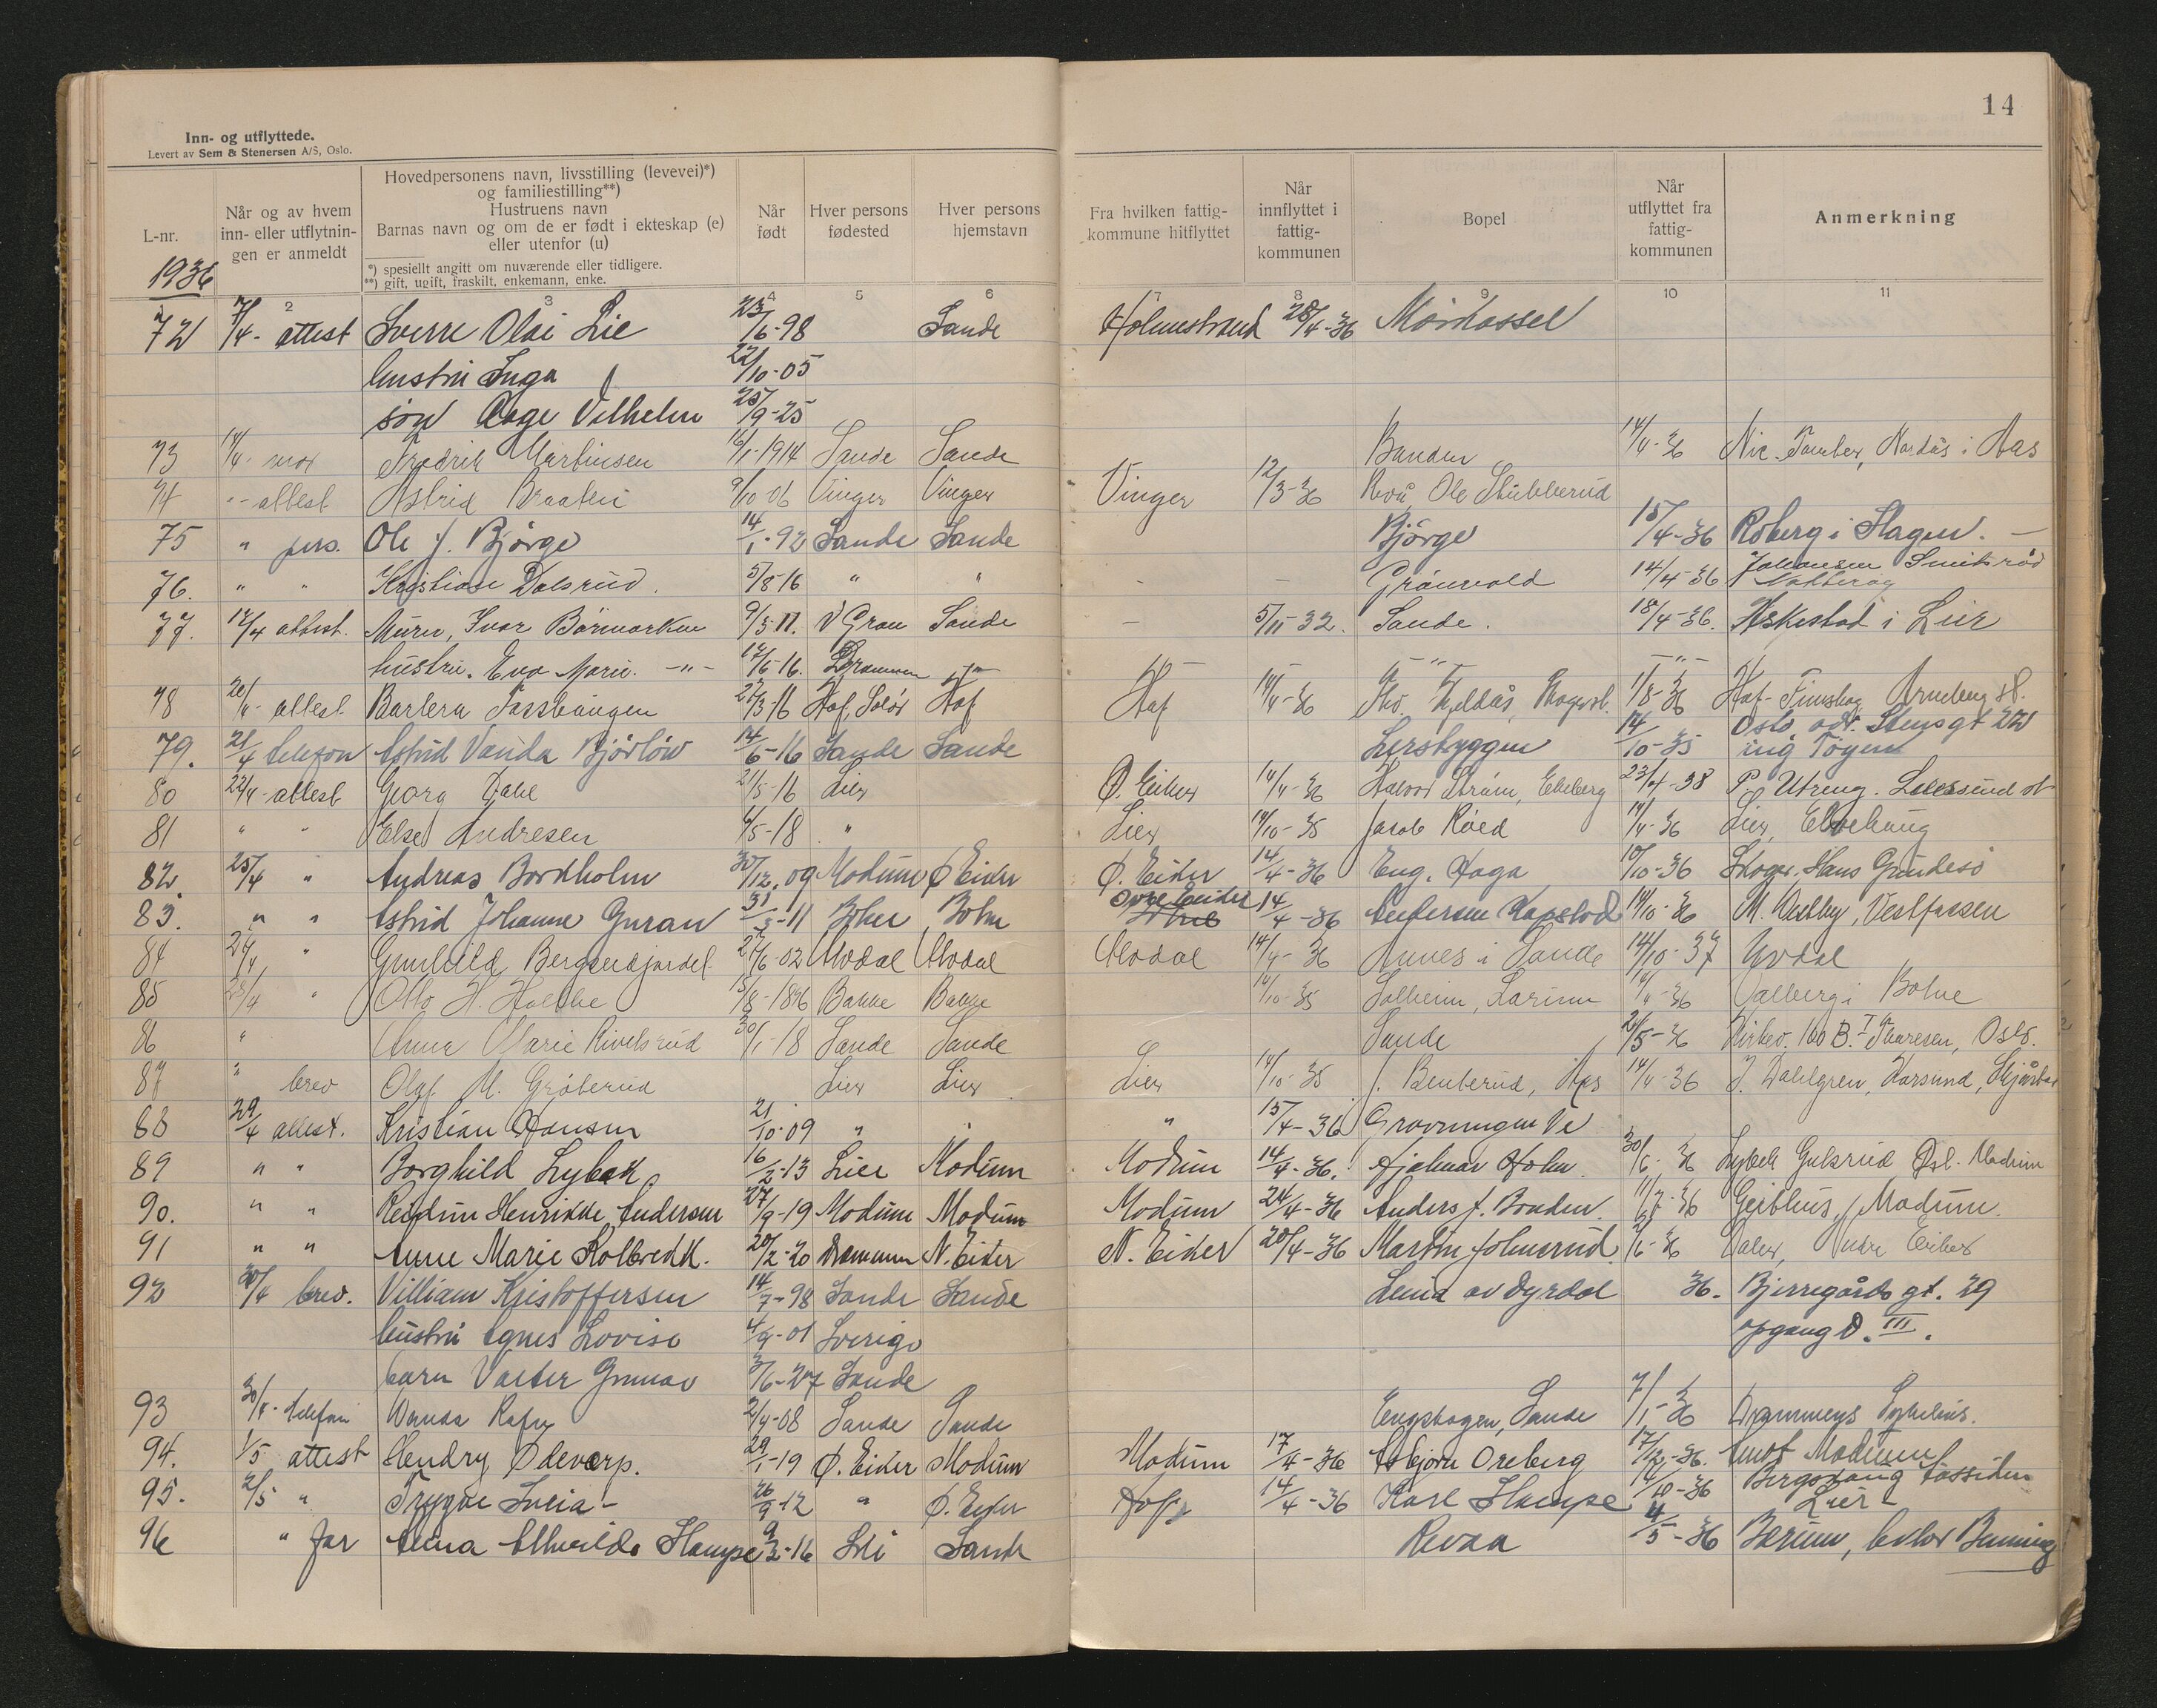 14
Inn- og utflyttede.
Levert av Sem & Stenersen A/S, Oslo.
L-nr.
Når og av hvem inn- eller utflytnin-gen er anmeldt
Hovedpersonens navn, livsstilling (levevei)*) og familiestilling**)
Hustruens navn
Barnas navn og om de er født i ekteskap (e) eller utenfor (u)
*) spesiellt angitt om nuværende eller tidligere.
**) gift, ugift, fraskilt, enkemann, enke.
Når født
Hver persons fødested
Hver persons hjemstavn
Fra hvilken fattig-kommune hitflyttet
Når innflyttet i fattig-kommunen
Bopel
Når utflyttet fra fattig-kommunen
Anmerkning
1936
2 3 4 5 6 7 8 9 10 11
72 7/4- attest Sverre Olai Lie 23/6-98 Sande Holmestrand 28/4-36
hustru Inga 22/10-05
søn Aage Vilhelm 25/9-25
73 14/4- Fredrik Martinsen 16/1-1914 Sande Sande 14/4-36 i Aas
74 -"- attest Astrid Braaten 9/10-06 Vinger Vinger Vinger 12/3-36 Revå, Ole Stubberud
75 " pers. Ole J. Bjørge 14/1-92 Sande Sande Bjørge 15/4-36 Roberg i Slagen. -
76. " " Kristian Dalsrud. 5/8-16 " " - - Grånvold 14/4-36 Johansen
77. 17/4 attest. Murer, Ivar Børmarken 9/3-11. V Gran Sande - 5/11-32. Sande. 18/4-36. Askestad i Lier
hustru. Eva Marie. -"- 17/6-16. Drammen -"- - - -"- -"-
78 20/4- attest Barbra 27/3-16 Hof, Solør Hof Hof 14/4-36 1/8-36 Hof- Arneberg st.
79. 21/4 telefon Astrid Vanda Bjørløw 14/6-16 Sande Sande Lersbryggen 14/10-35 Oslo adr. Stensgt 22
Tøyen
80 22/4- attest Georg Dahl 21/5-16 Lier Ø. Eiker 14/4-36 Halvor Strøm, Ekeberg 23/4-38
81 " " Else Andresen 4/5-18 " Lier 14/10-35 Jacob Røed 14/4-36 Lier,
82. 25/4 " Andreas Bordholm 30/12. 09 Modum Ø Eiker Ø. Eiker 14/4-36 Eng. Haga 10/10-36 Skoger. Hans
83. " " Astrid Johanne Guran 31/3-11 Botne Botne Øvre Eiker 14/4-36 Andersen Kopstad 14/10-36 M. Vestby, Vestfossen
84 27/4 " Gunhild 27/6-02 Uvdal Uvdal Uvdal 14/4-36 i Sande 14/10-37 Uvdal
85 28/4 " Otto H. 5/8-1896 Bakke Bakke 14/10-35 Solheim, 14/4-36 Valberg i Botne
86 " Anna Marie Rivelsrud 30/1-18 Sande Sande Sande 20/5-36 Kirkev. 160 B. I Thoresen, Oslo.
87 " brev Olaf M. Grøterud Lier Lier Lier 14/10-35 J. Benterud, Aas 14/4-36 J. Dahlgren, Horsund,
88 29/4 attest. Kristian Hansen 21/10-09 " " " 15/4-36 Gravningen Ve
89 " " Borghild Lybæk 16/2-13 Lier Modum Modum 14/4-36. Hjalmar Holm 30/6-36 Lybek Gulsrud Modum
90. " " Reidun Henrikke Andersen 27/9-19 Modum Modum Modum 24/4-36 Anders J. Bonden. 11/7-36 Geithus, Modum.
91 " " Anne Marie Kolbrekk. 20/2-20 Drammen N. Eiker N. Eiker 20/4-36 Martin Holmsrud. 2/6-36 Nedre Eiker
92 30/4 brev. Villiam Kristoffersen 14/7-98 Sande Sande av Dyrdal 36. Bjerregårds gt. 29
hustru Agnes Lovise 4/9-01 Sverige opgang D. III.
barn Valter Gunnar 3/6-27 Sande
93 30/4- telefon Wanda 2/4-08 Sande Sande Engskogen, Sande 7/1-36 Drammens Sykehus.
94. 1/5 attest Hendry Odevarp. 29/1-19 Ø. Eiker Modum Modum 17/4-36 Asbjørn Oreberg 17/12-36. Åmot Modum
95. 2/5 " Trygve 26/9-12 " Ø. Eiker Hof 14/4-36 Karl Skampe 14/10-36 Bergsvang Tossiden
Lier-
96 " far Anna Alhvilde Skampe 9/2-16 Sande Revaa 4/5-36 Bærum,